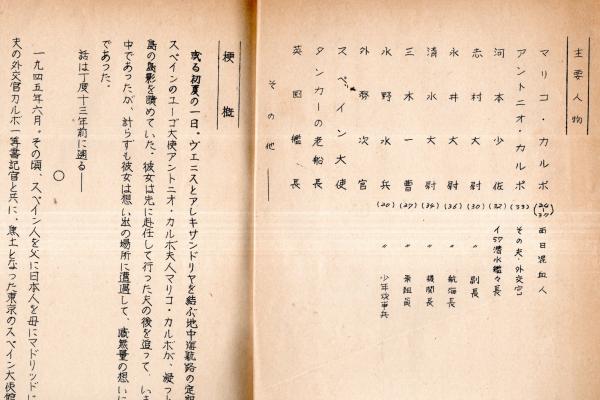 主要人物
マリコ・カルボ (24-37) 西日混血人
アントニオ・カルボ (33) その夫・外交官
河本少佐 (32) イ57潜水艦々長
志村大尉 (30) 〃 副長
永井大尉 (36) 〃 航海長
清水大尉 (34) 〃 機関長
三木一曹 (27) 〃 乗組員
水野水兵 (20) 〃 少年炊事兵
外務次官
スペイン大使
タンカーの老船長
英国艦長
その他——
梗概
或る初夏の一日。ヴェニスとアレキサンドリヤを結ぶ地中海航路の定期
スペインのユーゴ大使アントニオ・カルボ夫人マリコ・カルボが、凝っ
島の島影を眺めていた。彼女は先に赴任して行った夫の後を追って、い
中であったが、計らずも彼女は想い出の場所に遭遇して、感無量の想いに
であった。
話は丁度十三年前に遡る——
○
一九四五年六月。その頃、スペイン人を父に日本人を母にマドリッドに
夫の外交官カルボ一等書記官と共に、焦土となった東京のスペイン大使館